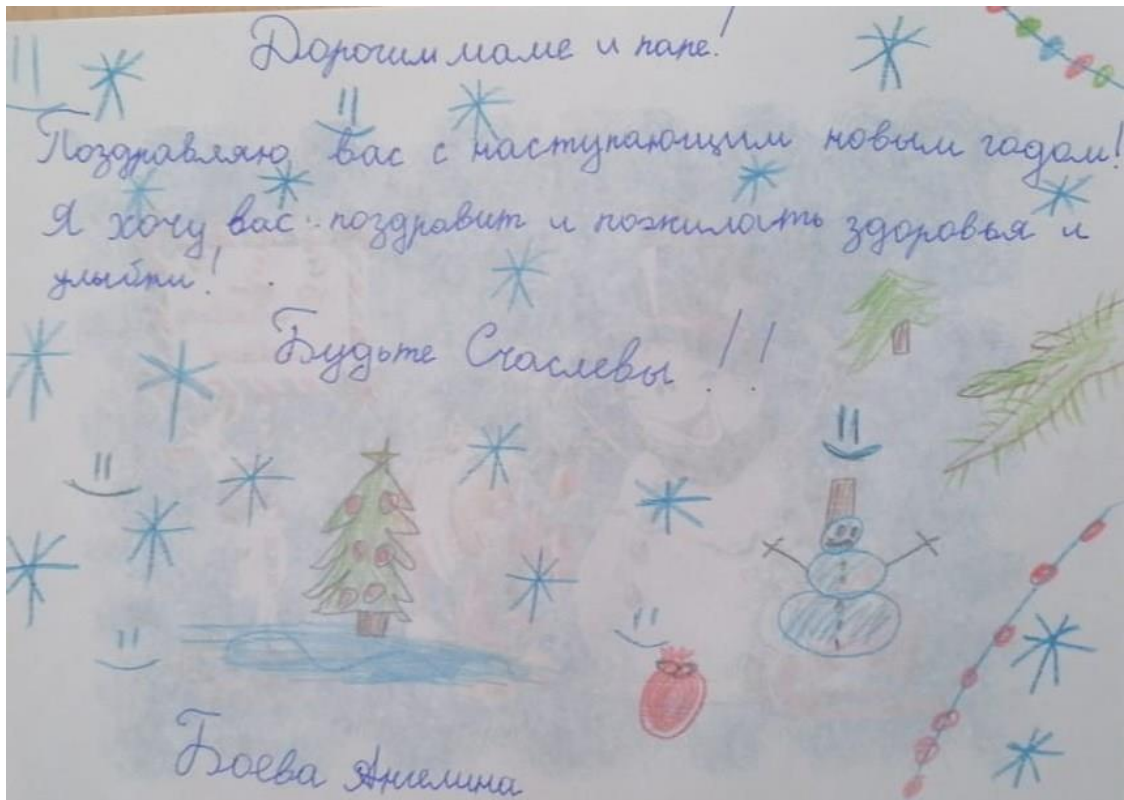 Дорогим маме и папе!
Поздравляю вас с наступающим новым годом!
Я хочу вас поздравит и пожилать здоровья и
улыбки!
Будьте Счаслевы!!
Боева Ангелина